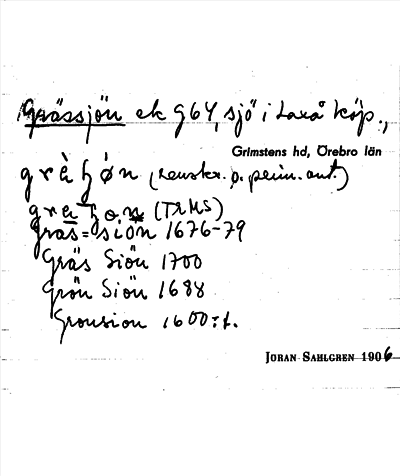 Grässjön ek 964, sjö i Laxå köp.,
Grimstens hd, Örebro län
(renskr. o. prim. ant)
(TRMS)
gräs=siön 1676-79
Gräs Siön 1700
Grön Siön 1688
Gronsion 1600:t.
JÖRAN SAHLGREN 1906